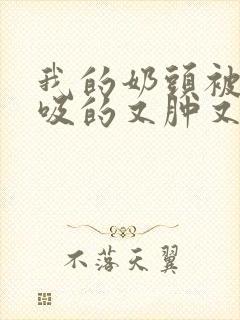 我的奶頭被
吸的又肿又
不落天翼